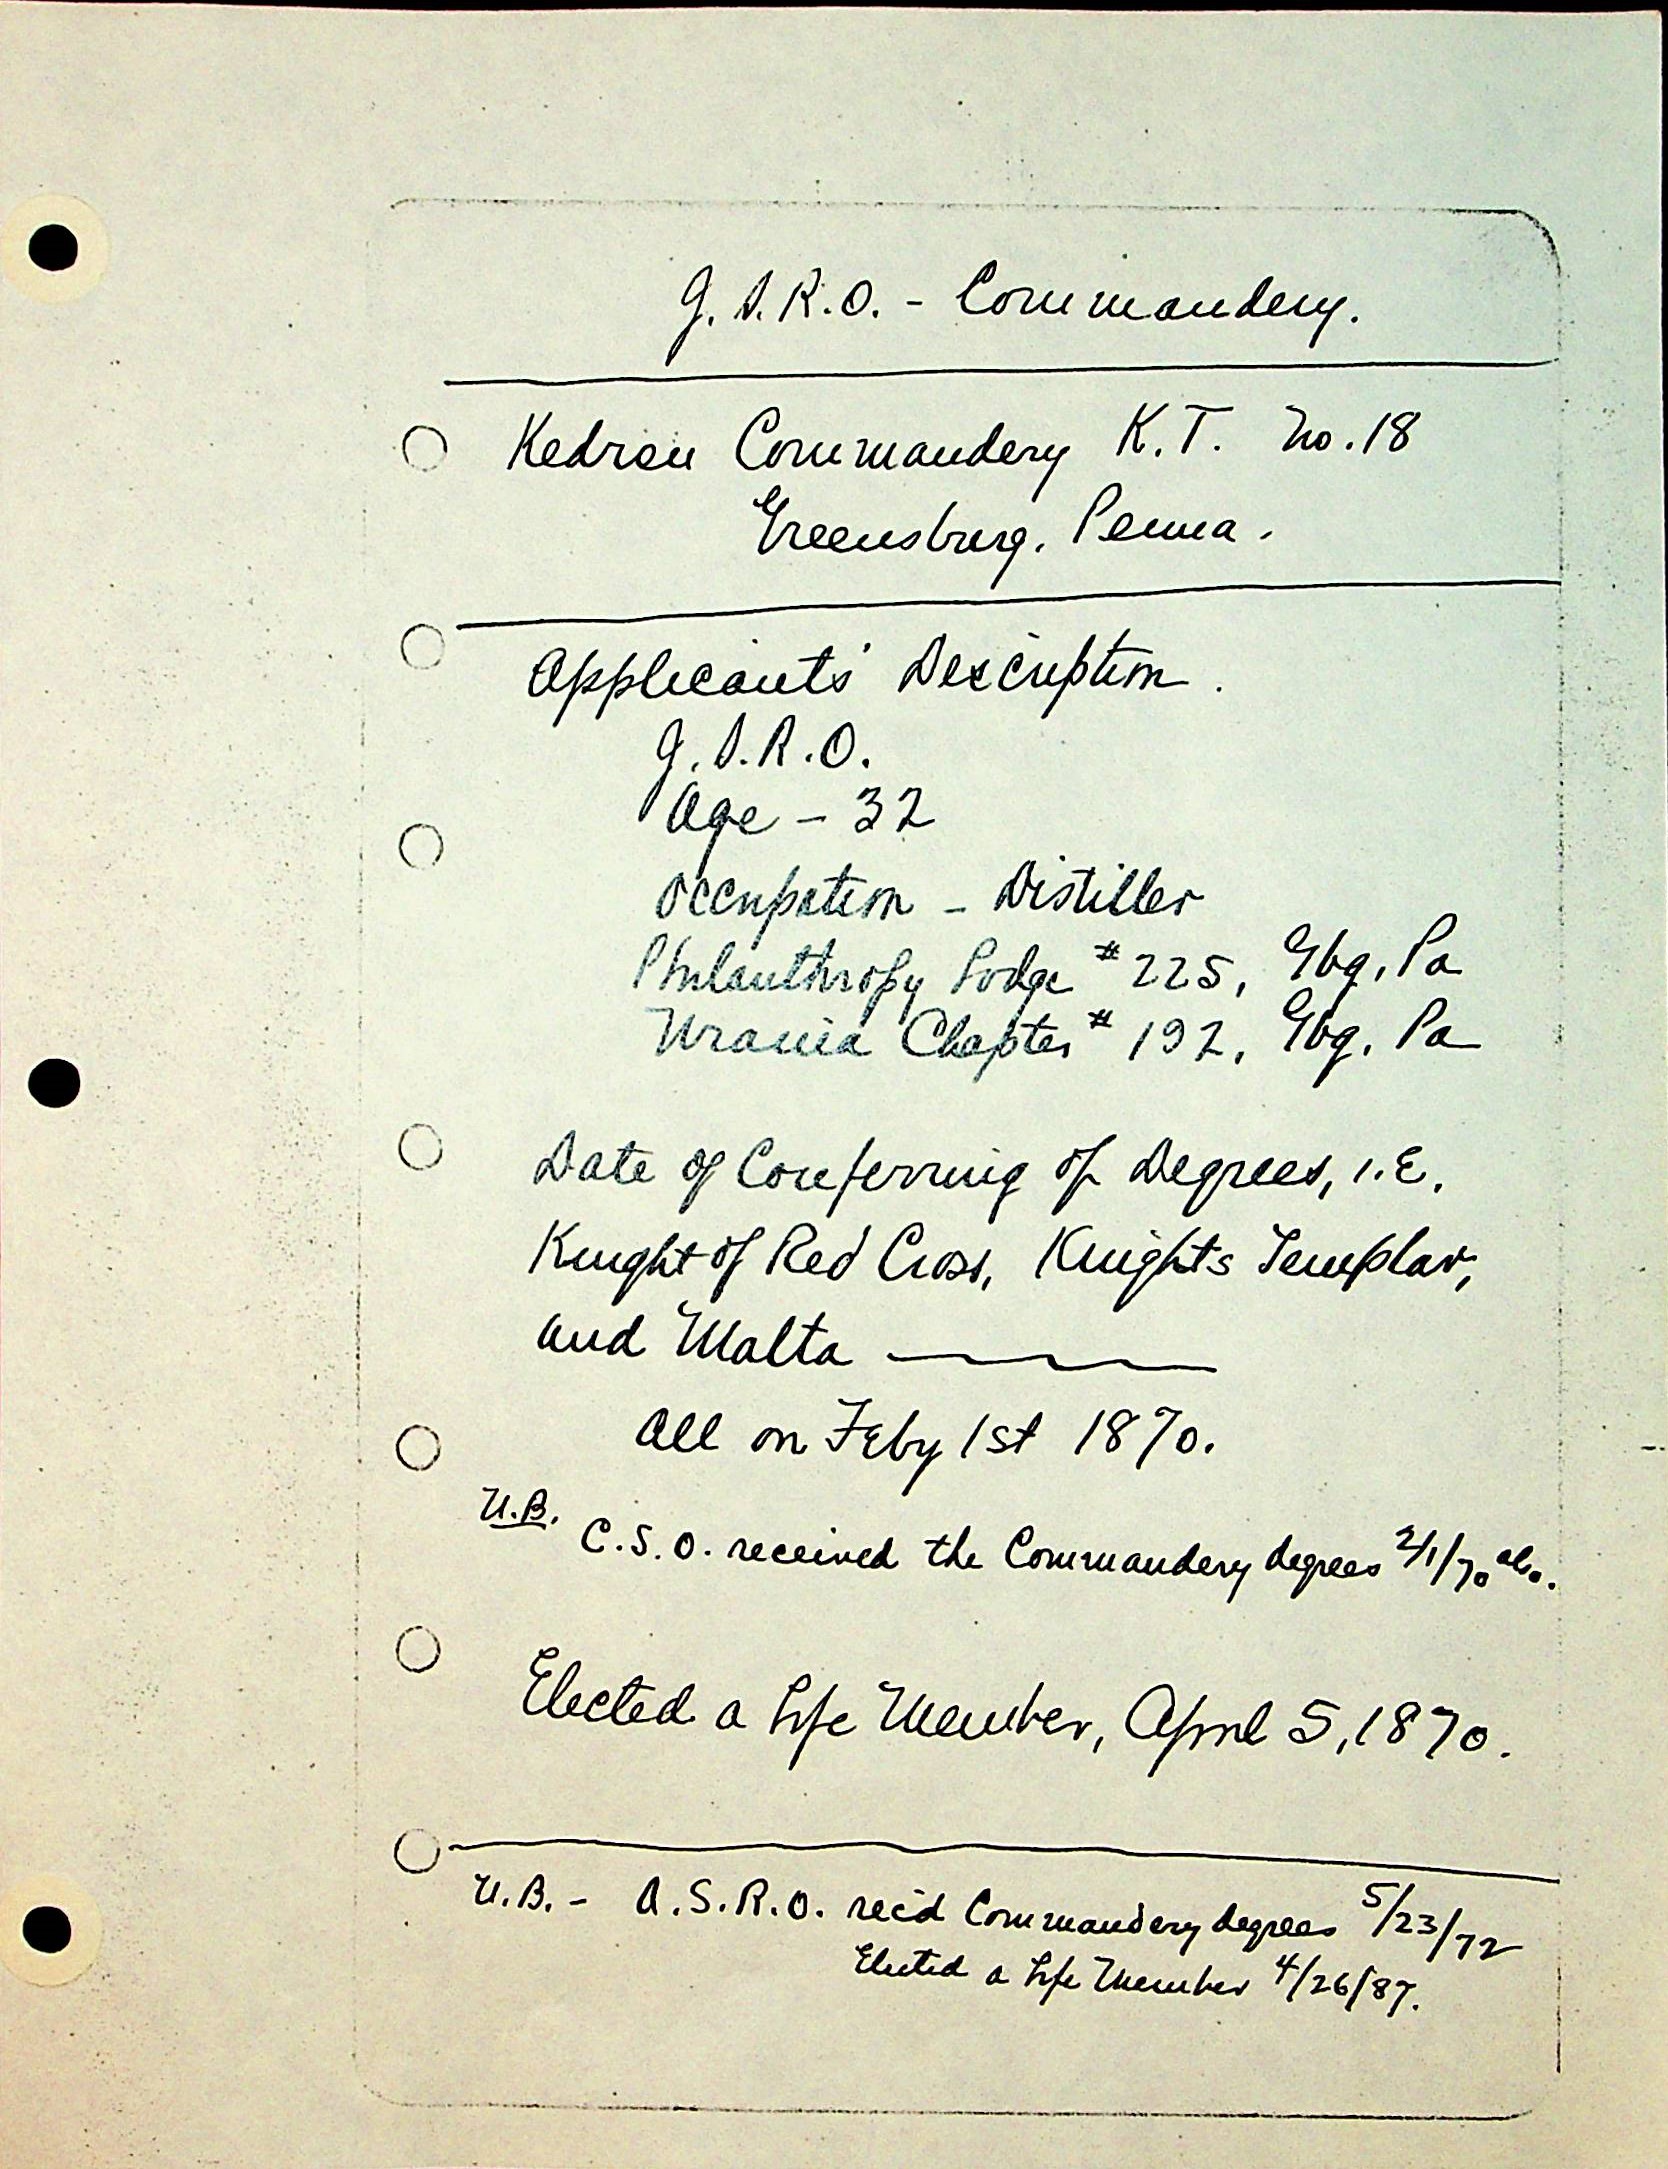 J.S.R.O. - Commandery.
Kedron Commandery K.T. No. 18
Greensburg, Penna.
Applicants' Description.
J.S.R.O.
Age - 32
Occupation - Distiller
Philanthropy Lodge # 225, Gbg, Pa
Urania Chapter # 192, Gbg, Pa
Date of Conferring of Degrees, i.E.
Knight of Red Cross, Knights Templar,
and Malta
All on Feby 1st 1870.
N.B. C.S.O. received the Commandery degrees 2/1/70 also.
Elected a Life Member, April 5, 1870.
N.B. - A.S.R.O. rec'd Commandery degrees 5/23/72
Elected a Life Member 4/26/87.